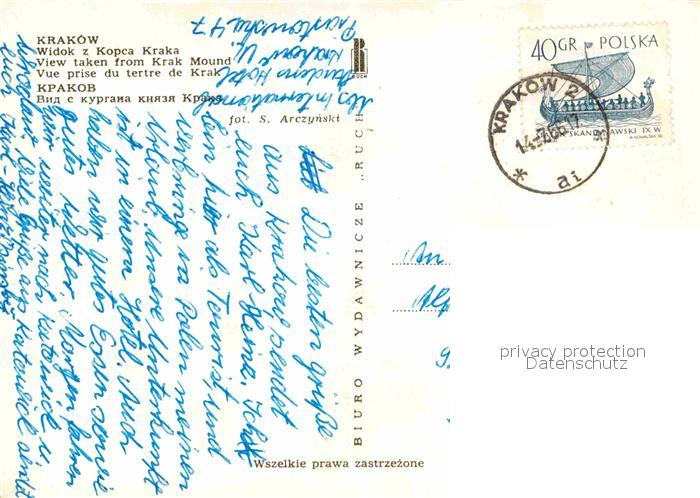 KRAKÓW
Widok z Kopca Kraka
View taken from Krak Mound
Vue prise du tertre de Krak
КРАКОВ
Вид с кургана князя Крака
fot. S. Arczyński
RUCH
BIURO WYDAWNICZE „RUCH
Wszelkie prawa zastrzeżone
40GR POLSKA
SKANDYNAWSKI IX W
KRAKÓW 2
ai
Die besten Grüße
aus Krakow sendet
euch Karl Heinz. Ich
bin hier als Tourist und
verbringe in Polen meinen
Urlaub. Unsre Unterkunft
ist in einem Hotel. Auch
haben wir gutes Essen sowie
gutes Wetter. Morgen fahren
wir weiter nach Katowice u.
Viele Grüße aus Katowice
euch Karl-Heinz
International
Student Hotel
Krakow
Piastowska 47
An
Alf
privacy protection
Datenschutz